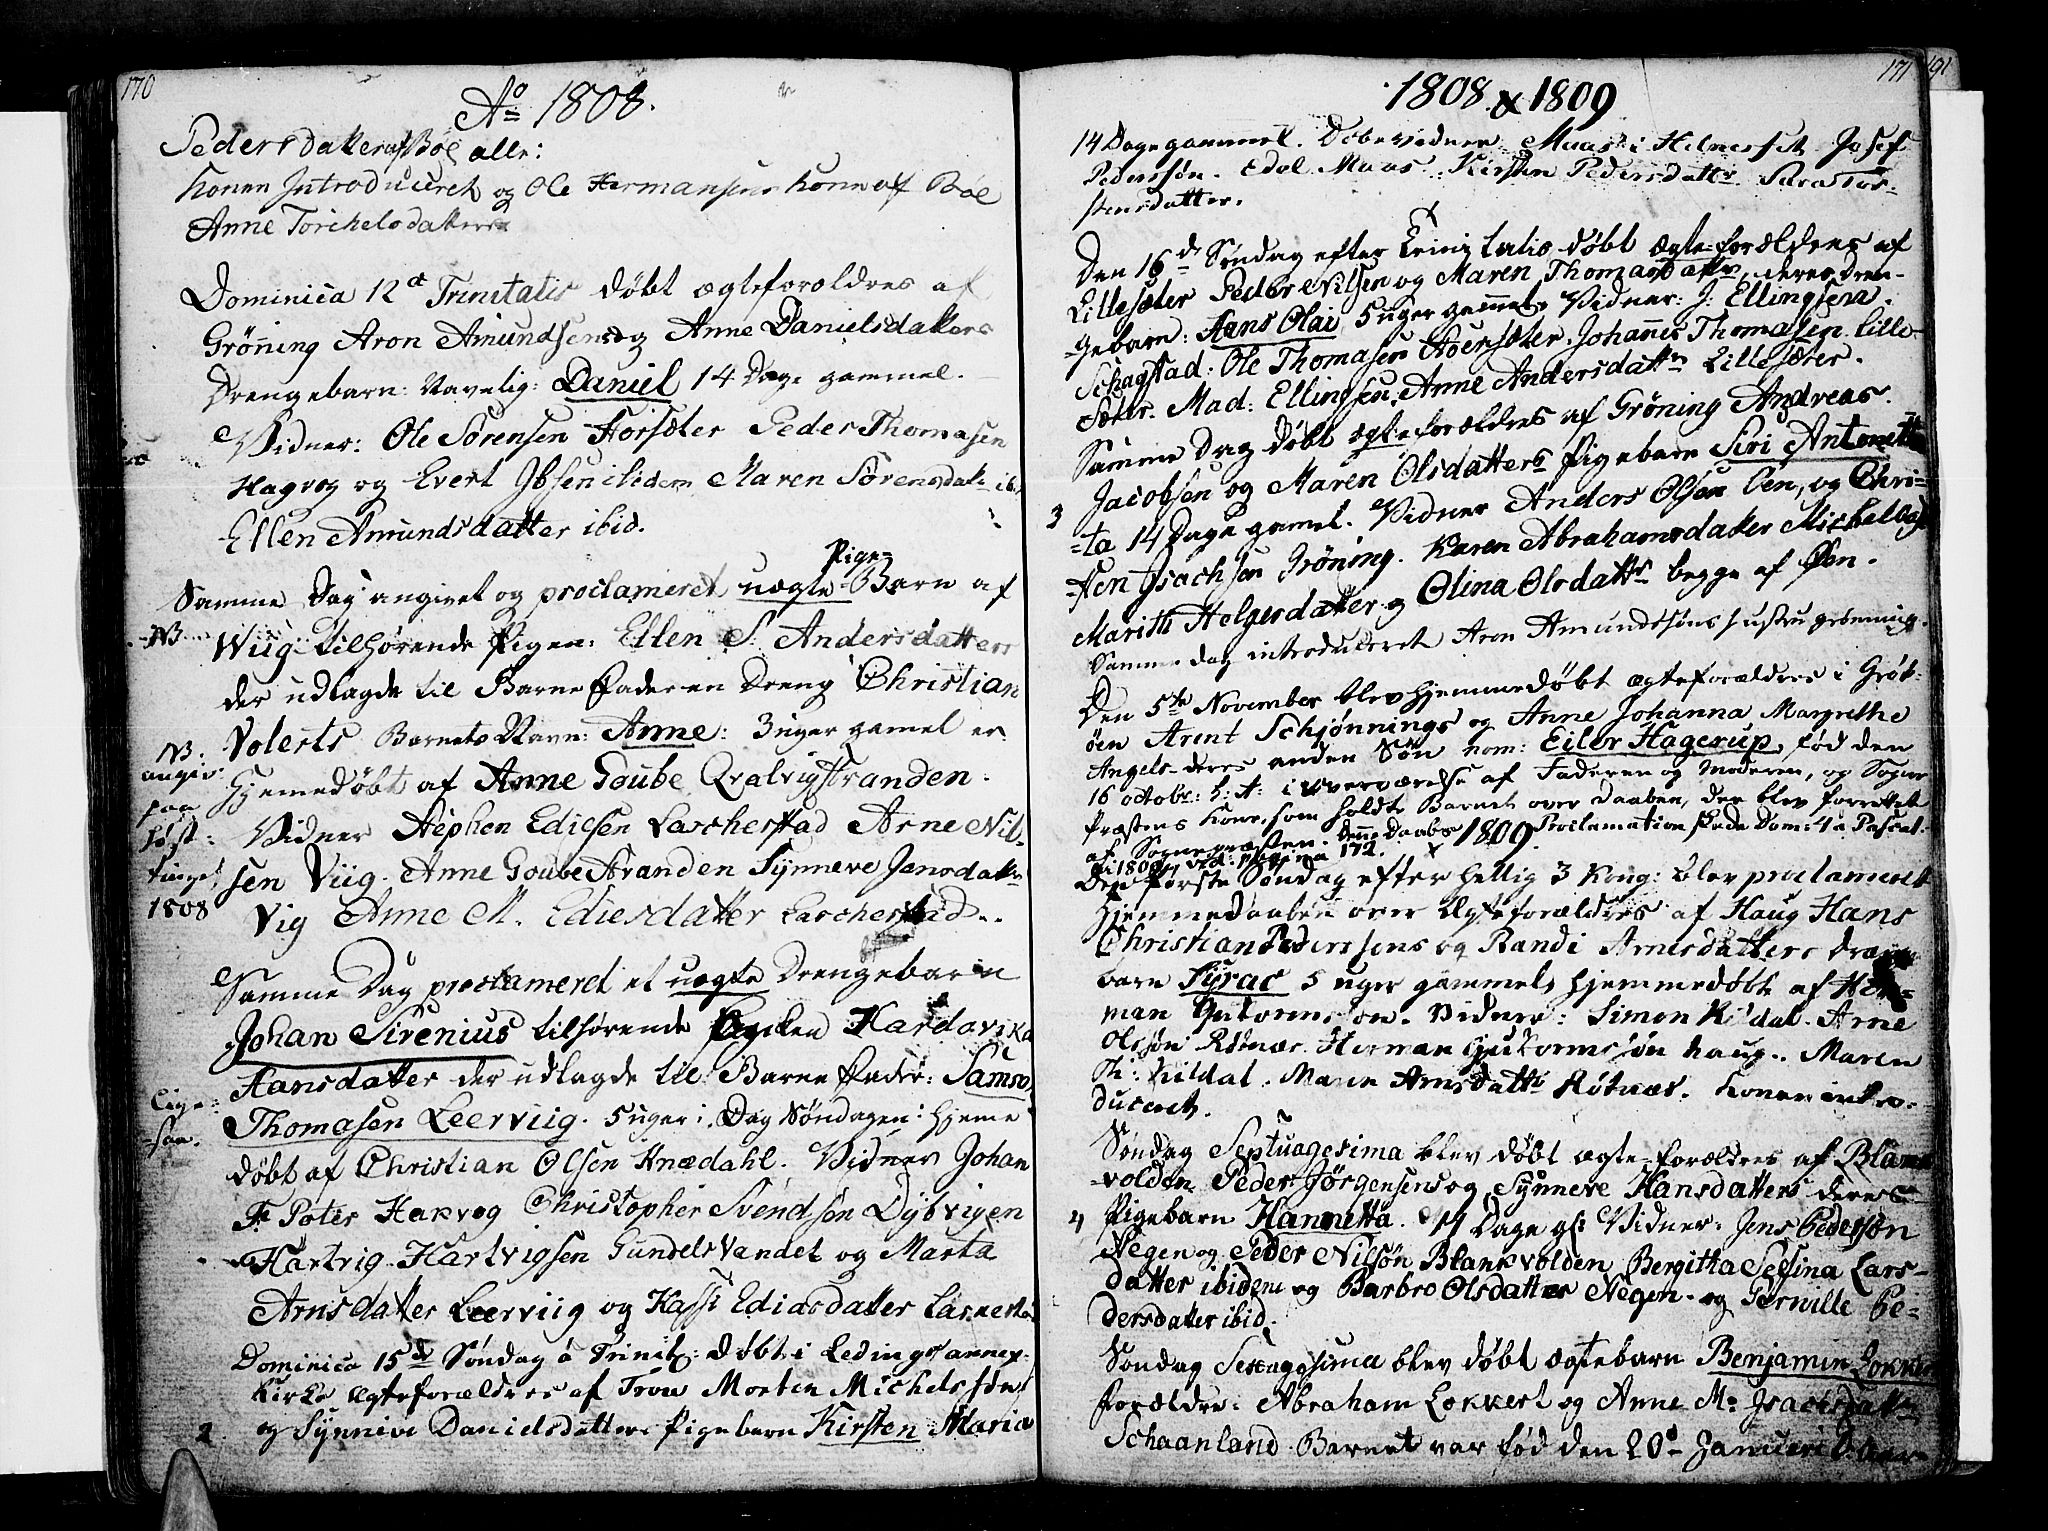 170
Ao 1808.
Pedersdatter af Böe alle:
Konen Introduceret og Ole Hermansens Kone af Böe
Anne Torchelsdatter
Dominica 12te Trinitatis döbt ægteforældres af
Gröning Aron Amundsens og Anne Danielsdatters
Drengebarn: Navnlig: Daniel 14 Dage gammel.
Vidner: Ole Sörensen Forsæter Peder Thomasen
Hagvog og Evert Ibsen ibidem Maren Sörensdatt: ibid
Ellen Amundsdatter ibid.
Pige=
Samme Dag angivet og proclameret uægte Barn af
NB
Wiig tilhörende Pigen: Ellen S. Andersdatters
der udlagde til Barnefader en Dreng Christian
Volerts Barnets Navn: Anne: 3 uger gamel er
NB.
angiv:
paa
Höst:
tinget
1808
Hjemedöbt af Anne Goube Qvalvigstranden.
Vidner Stephen Ediesen Laschestad Arne Nil-
sen Viig. Anne Goube Stranden Synneve Jensdatter
Vig Anne M. Ediesdatter Laschestad.
Samme Dag proclameret et uægte Drengebarn
Johan Sirenius tilhörende Pigen Hardavika
Hansdatter der udlagde til Barnefader: Samso
Lige=
saa.
Thomasen Leerviig. 5 uger i Dag Söndagen: Hjeme
döbt af Christian Olsen Knædahl. Vidner Johan
Fr Peter Hakvog Christopher Svendsön Dybvigen
Hartvig Hartvigsen Gundelsvandet og Marta
Arnsdatter Leerviig og Kassi Ediasdatter
Dominica 15de Söndag a Trinit: döbt i Ledings annex-
Kirke ægteforældres af Trou Morten Michelssöns
2
og Synnive Danielsdatters Pigebarn Kirsten Maria
171
191
1808 & 1809
14 Dage gammel. Döbevidner Maas i Helnesset Josef
Pedersön. Edel Maas. Kirsten Pedersdattr Sara Tor-
stensdatter.
Den 16de Söndag efter Trinitatis döbt ægteforældres af
Lillesæter Peder Nilsen og Maren Thomasdattr, deres Dren-
gebarn: Hans Olai 5 uger gammel Vidner: J: Ellingsen.
Schagstad: Ole Thomasen Aoersæter. Johannes Thomasen Lille-
sæter. Mad: Ellingsen. Anne Andersdattr Lillesæter.
Samme Dag döbt ægteforældres af Gröning Andreas
Jacobsen og Maren Olsdatters Pigebarn Siri Antonett
3
=ta 14 Dage gamel. Vidner Anders Olsen Öen, og Chri=
sten Isachsen Gröning. Karen Abrahamsdatter Michelbost
Marith Helgesdatter og Olina Olsdattr begge af Öen.
Samme dag introduceret Aron Amundssöns hustru grönning.
Den 5te November blev hjemmedöbt ægteforældres i Gröt-
öen Arent Schjönnings og Anne Johanna Margrethe
Angels deres anden Sön nom: Eiler Hagerup, föd den
16 octobr: h: A: i overværelse af Faderen og Moderen, og Sogne
Præstens Kone, som holdt Barnet over daaben, der blev forrettet
af Sognepræsten. denne Daabs Proclamation skede Dom: 4 a Pascat.
i 1809 vid: pagina 172.
1809.
Den förste Söndag efter Hellig 3 Kong: blev proclameret
Hjemmedaaben over Ægteforældres af Haug Hans
Christian Pederssens og Randi Arnesdatters Dreng
barn Syrac 5 uger gammel, hjemmedöbt af Her-
man Gutormsson. Vidner: Simon Kildal. Arne
Olssön Rötnæs. Herman Guttormssön haug. Maren
Kildal. Maren Arnsdattr Rötnæs. Konen intro-
duceret.
Söndag Septuagesima blev döbt ægte-forældres af Blank
volden Peder Jörgensens og Synneve Hansdatters deres
4
Pigebarn Hannetta. 14 Dage gl: Vidner: Jens Pedersön
Negen og Peder Nilsön Blankvolden Bergitta Sesina Lars-
datter ibidem og Barbro Olsdatter Negen. og Perville Pe-
dersdatter ibid.
Söndag Sexagesima blev döbt ægtebarn Benjamin Lokkert
forældre: Abraham Lokkert og Anne M. Isachsdatter
Schaanland. Barnet var föd den 20de Januari